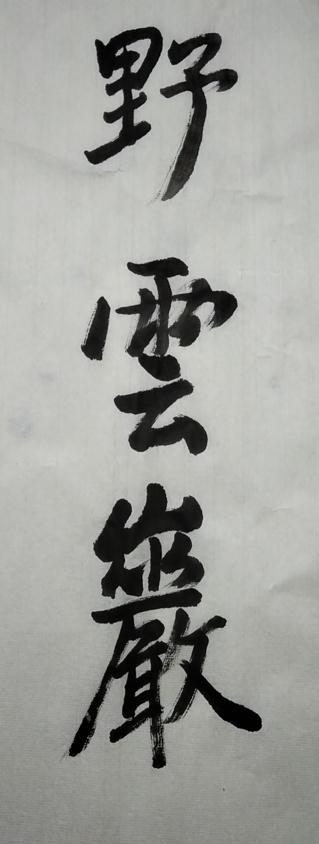 野雲巖